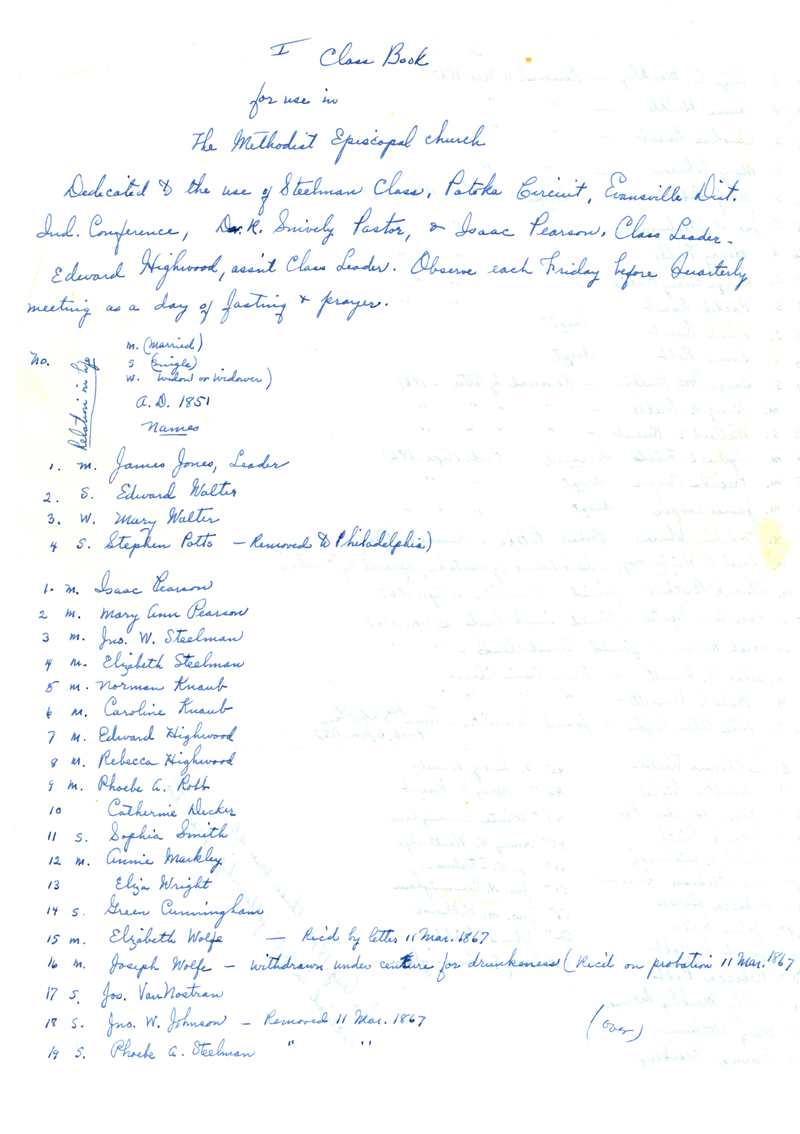 I Class Book
for use in
The Methodist Episcopal Church
Dedicated to the use of Steelman Class, Patoka Circuit, Evansville Dist.
Ind. Conference, R. Snively Pastor, & Isaac Pearson, Class Leader.
Edward Highwood, ass'nt Class Leader. Observe each Friday before Quarterly
meeting as a day of fasting & prayer.
No. Relation in life
m. (married)
s (single)
w. widow or widower)
A.D. 1851
Names
1. m. James Jones, Leader
2. S. Edward Walter
3. W. Mary Walter
4 S. Stephen Potts - Removed to Philadelphia)
1. m. Isaac Pearson
2 m. Mary Ann Pearson
3 m. Jno. W. Steelman
4 m. Elizabeth Steelman
5 m. Norman Knaub
6 m. Caroline Knaub
7 m. Edward Highwood
8 m. Rebecca Highwood
9 m. Phoebe A. Robb
10 Catherine Decker
11 s. Sophia Smith
12 m. Annie Markley
13 Eliza Wright
14 s. Green Cunningham
15 m. Elizabeth Wolfe - Rec'd by letter 11 Mar. 1867
16 m. Joseph Wolfe - withdrawn under centure for drunkeness (Rec'd on probation 11 Mar. 1867
17 s. Jos. VanNostran
18 s. Jno. W. Johnson - Removed 11 Mar. 1867
(over)
19 s. Phoebe A. Steelman " "